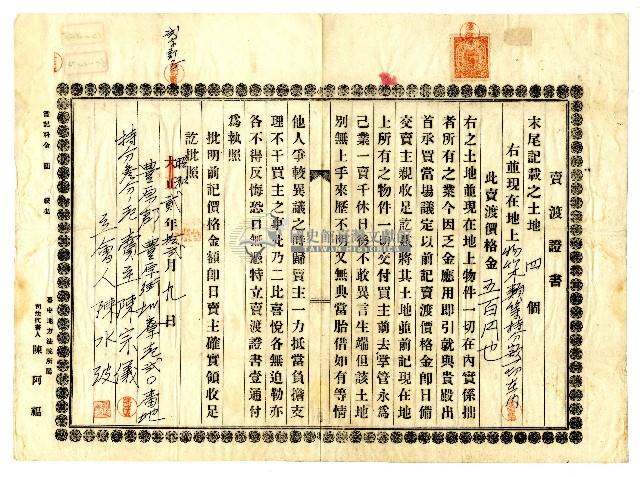 賣渡證書
末尾記載之土地 四 個
右並現在地上物竹木類等持分額一切在內
此賣渡價格金 五百円也
右之土地並現在地上物件一切在內實係拙
者所有之業今因乏金應用即引就與貴殿出
首承買當場議定以前記賣渡價格金即日備
交賣主親收足訖就將其土地並前記現在地
上所有之物件一並交付買主前去掌管永為
己業一賣千休日後不敢異言生端但該土地
別無上手來歷不明又無典當胎借如有等情
他人爭較異議之時歸賣主一力抵當負擔支
理不干買主之事此乃二比喜悅各無迫勒亦
各不得反悔恐口無憑特立賣渡證書壹通付
為執照
批明前記價格金額即日賣主確實領收足
訖批照
昭和貳年拾貳月九日
豐原郡豐原街
賣主 陳宗儀
立會人 陳水
臺中地方法院所屬
司法代書人 陳阿福
登記料金 圓